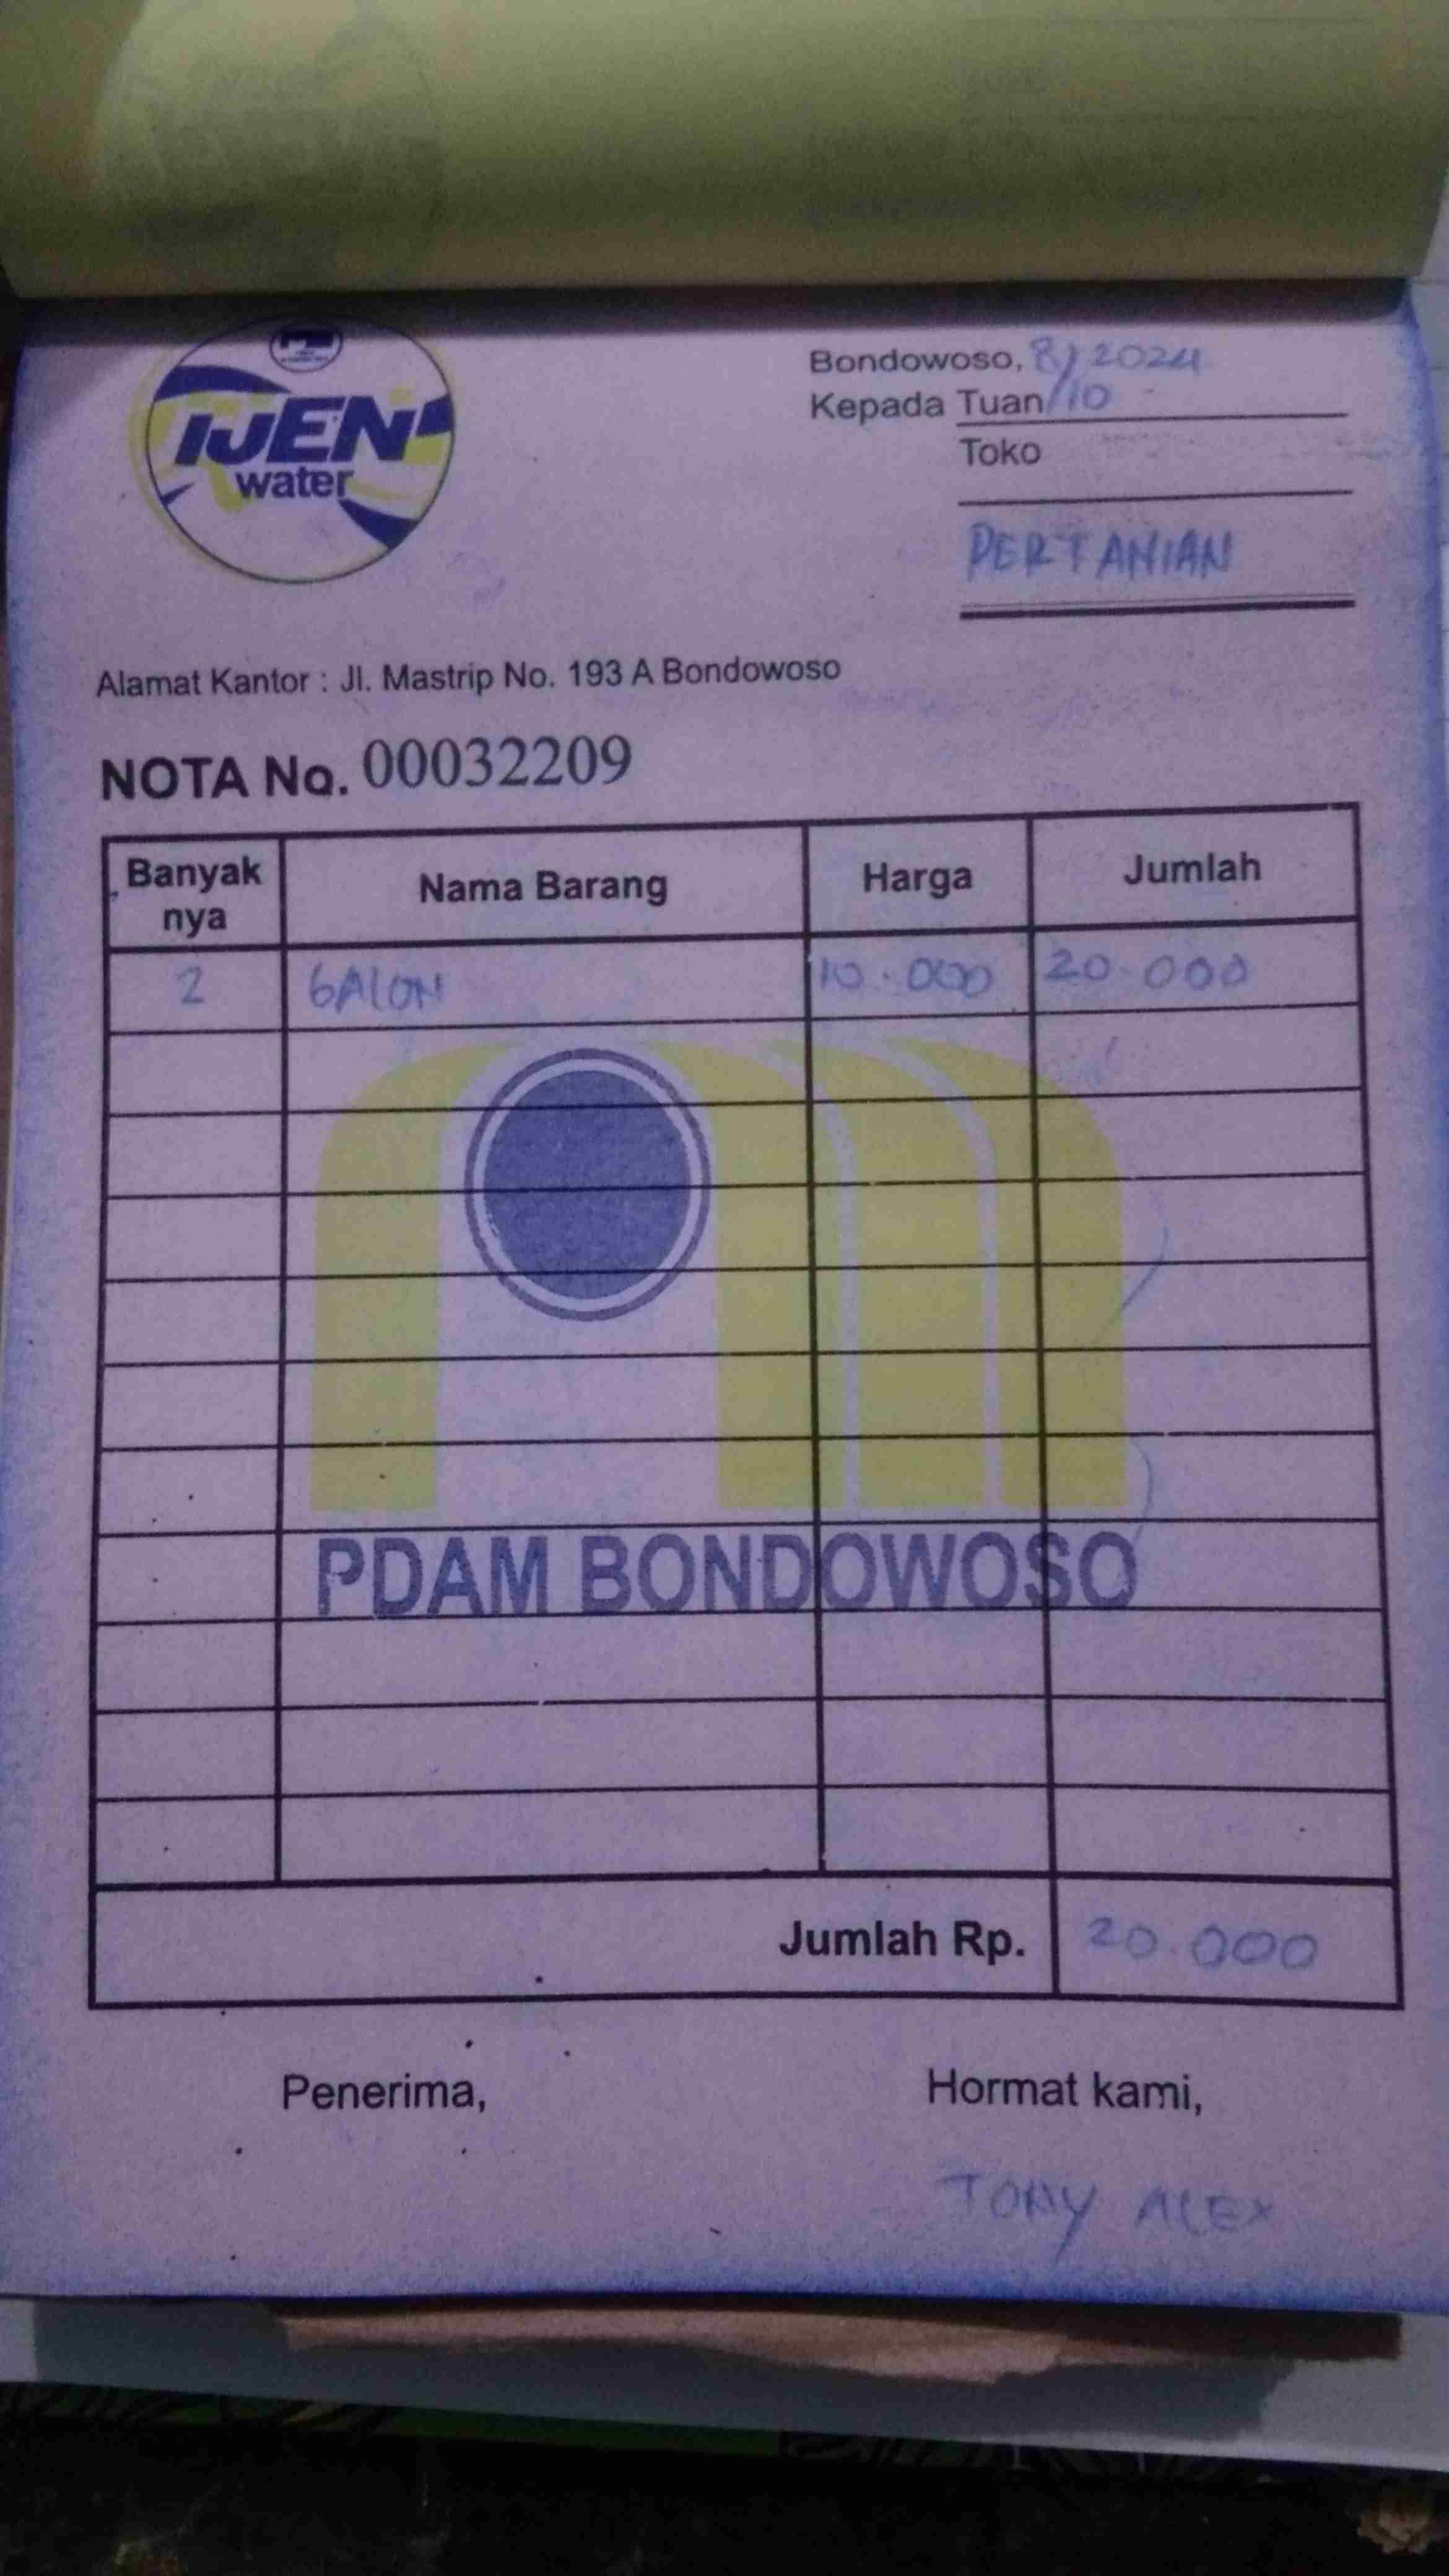 IJEN
water
Bondowoso, 8/10 2024
Kepada Tuan
Toko
PERTANIAN
Alamat Kantor : Jl. Mastrip No. 193 A Bondowoso
NOTA No. 00032209
Banyak nya Nama Barang Harga Jumlah
2 GALON 10.000 20.000
PDAM BONDOWOSO
Jumlah Rp. 20.000
Penerima, Hormat kami,
TONY ALEX